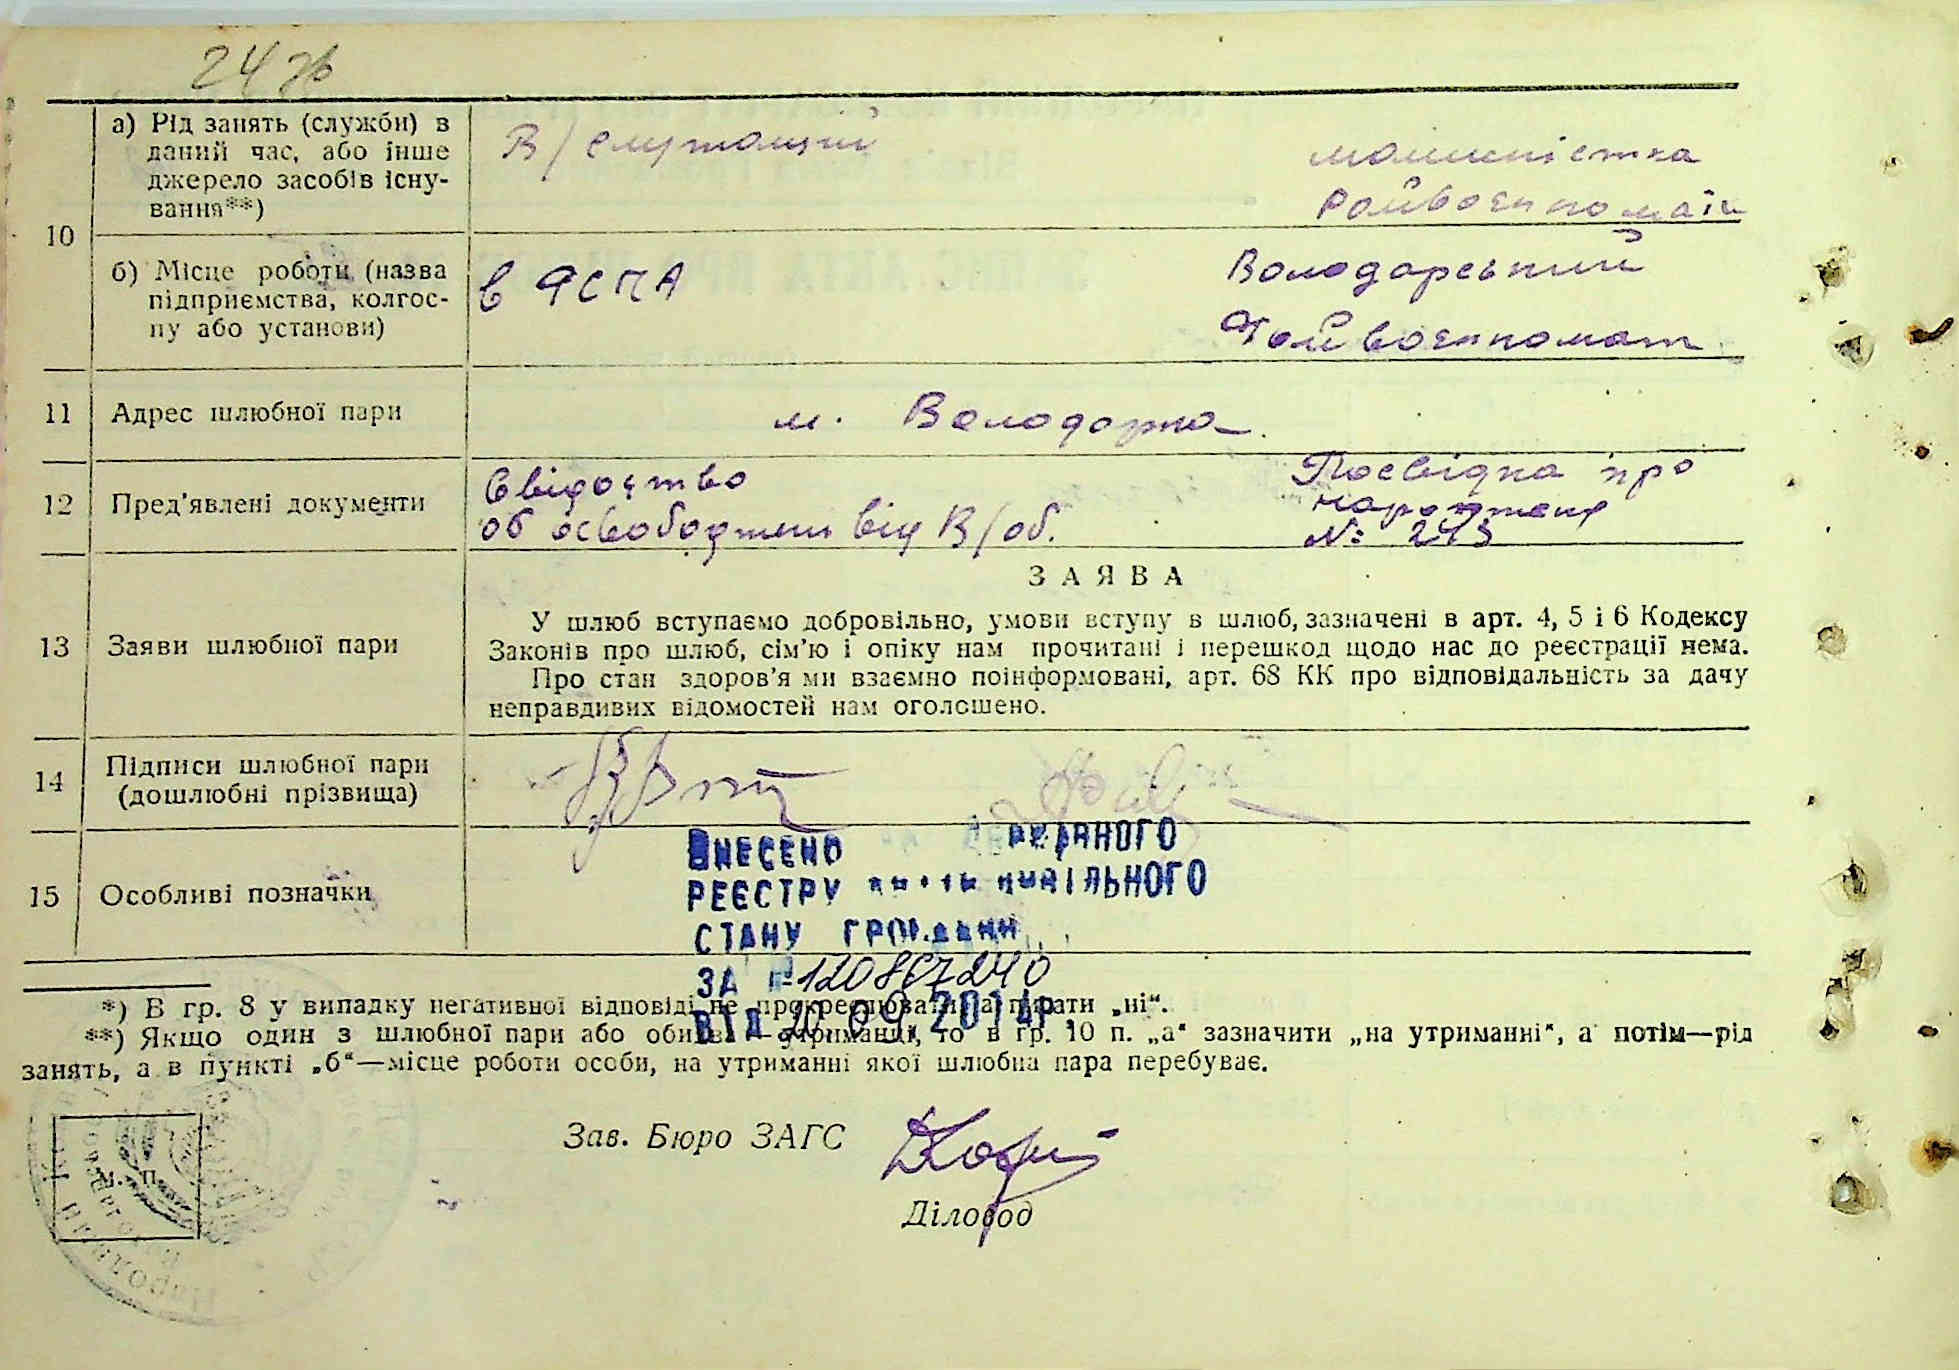 24 зв
10
а) Рід занять (служби) в
даний час, або інше
джерело засобів існу-
вання**)
В/служащий
машинистка
Райвоенкомаїи
б) Місце роботи (назва
підприємства, колгос-
пу або установи)
в ЯСПА
Володарський
Райвоенкомат
11
Адрес шлюбної пари
м. Володарка.
12
Пред'явлені документи
Свідоцтво
об освободжени від В/об.
Посвідка про
народження
№: 243
13
Заяви шлюбної пари
ЗАЯВА
У шлюб вступаємо добровільно, умови вступу в шлюб, зазначені в арт. 4, 5 і 6 Кодексу
Законів про шлюб, сім'ю і опіку нам прочитані і перешкод щодо нас до реєстрації нема.
Про стан здоров'я ми взаємно поінформовані, арт. 68 КК про відповідальність за дачу
неправдивих відомостей нам оголошено.
14
Підписи шлюбної пари
(дошлюбні прізвища)
15
Особливі позначки
ВНЕСЕНО ДЕРЖАВНОГО
РЕЄСТРУ АКТІВ ЦИВІЛЬНОГО
СТАНУ ГРОМАДЯН
ЗА №120867240
ВІД 20 09 2014р.
*) В гр. 8 у випадку негативної відповіді не прокреслювати, а писати „ні“.
**) Якщо один з шлюбної пари або обидва—утриманці, то в гр. 10 п. „а“ зазначити „на утриманні“, а потім—рід
занять, а в пункті „б“—місце роботи особи, на утриманні якої шлюбна пара перебуває.
Зав. Бюро ЗАГС
М. П.
Діловод